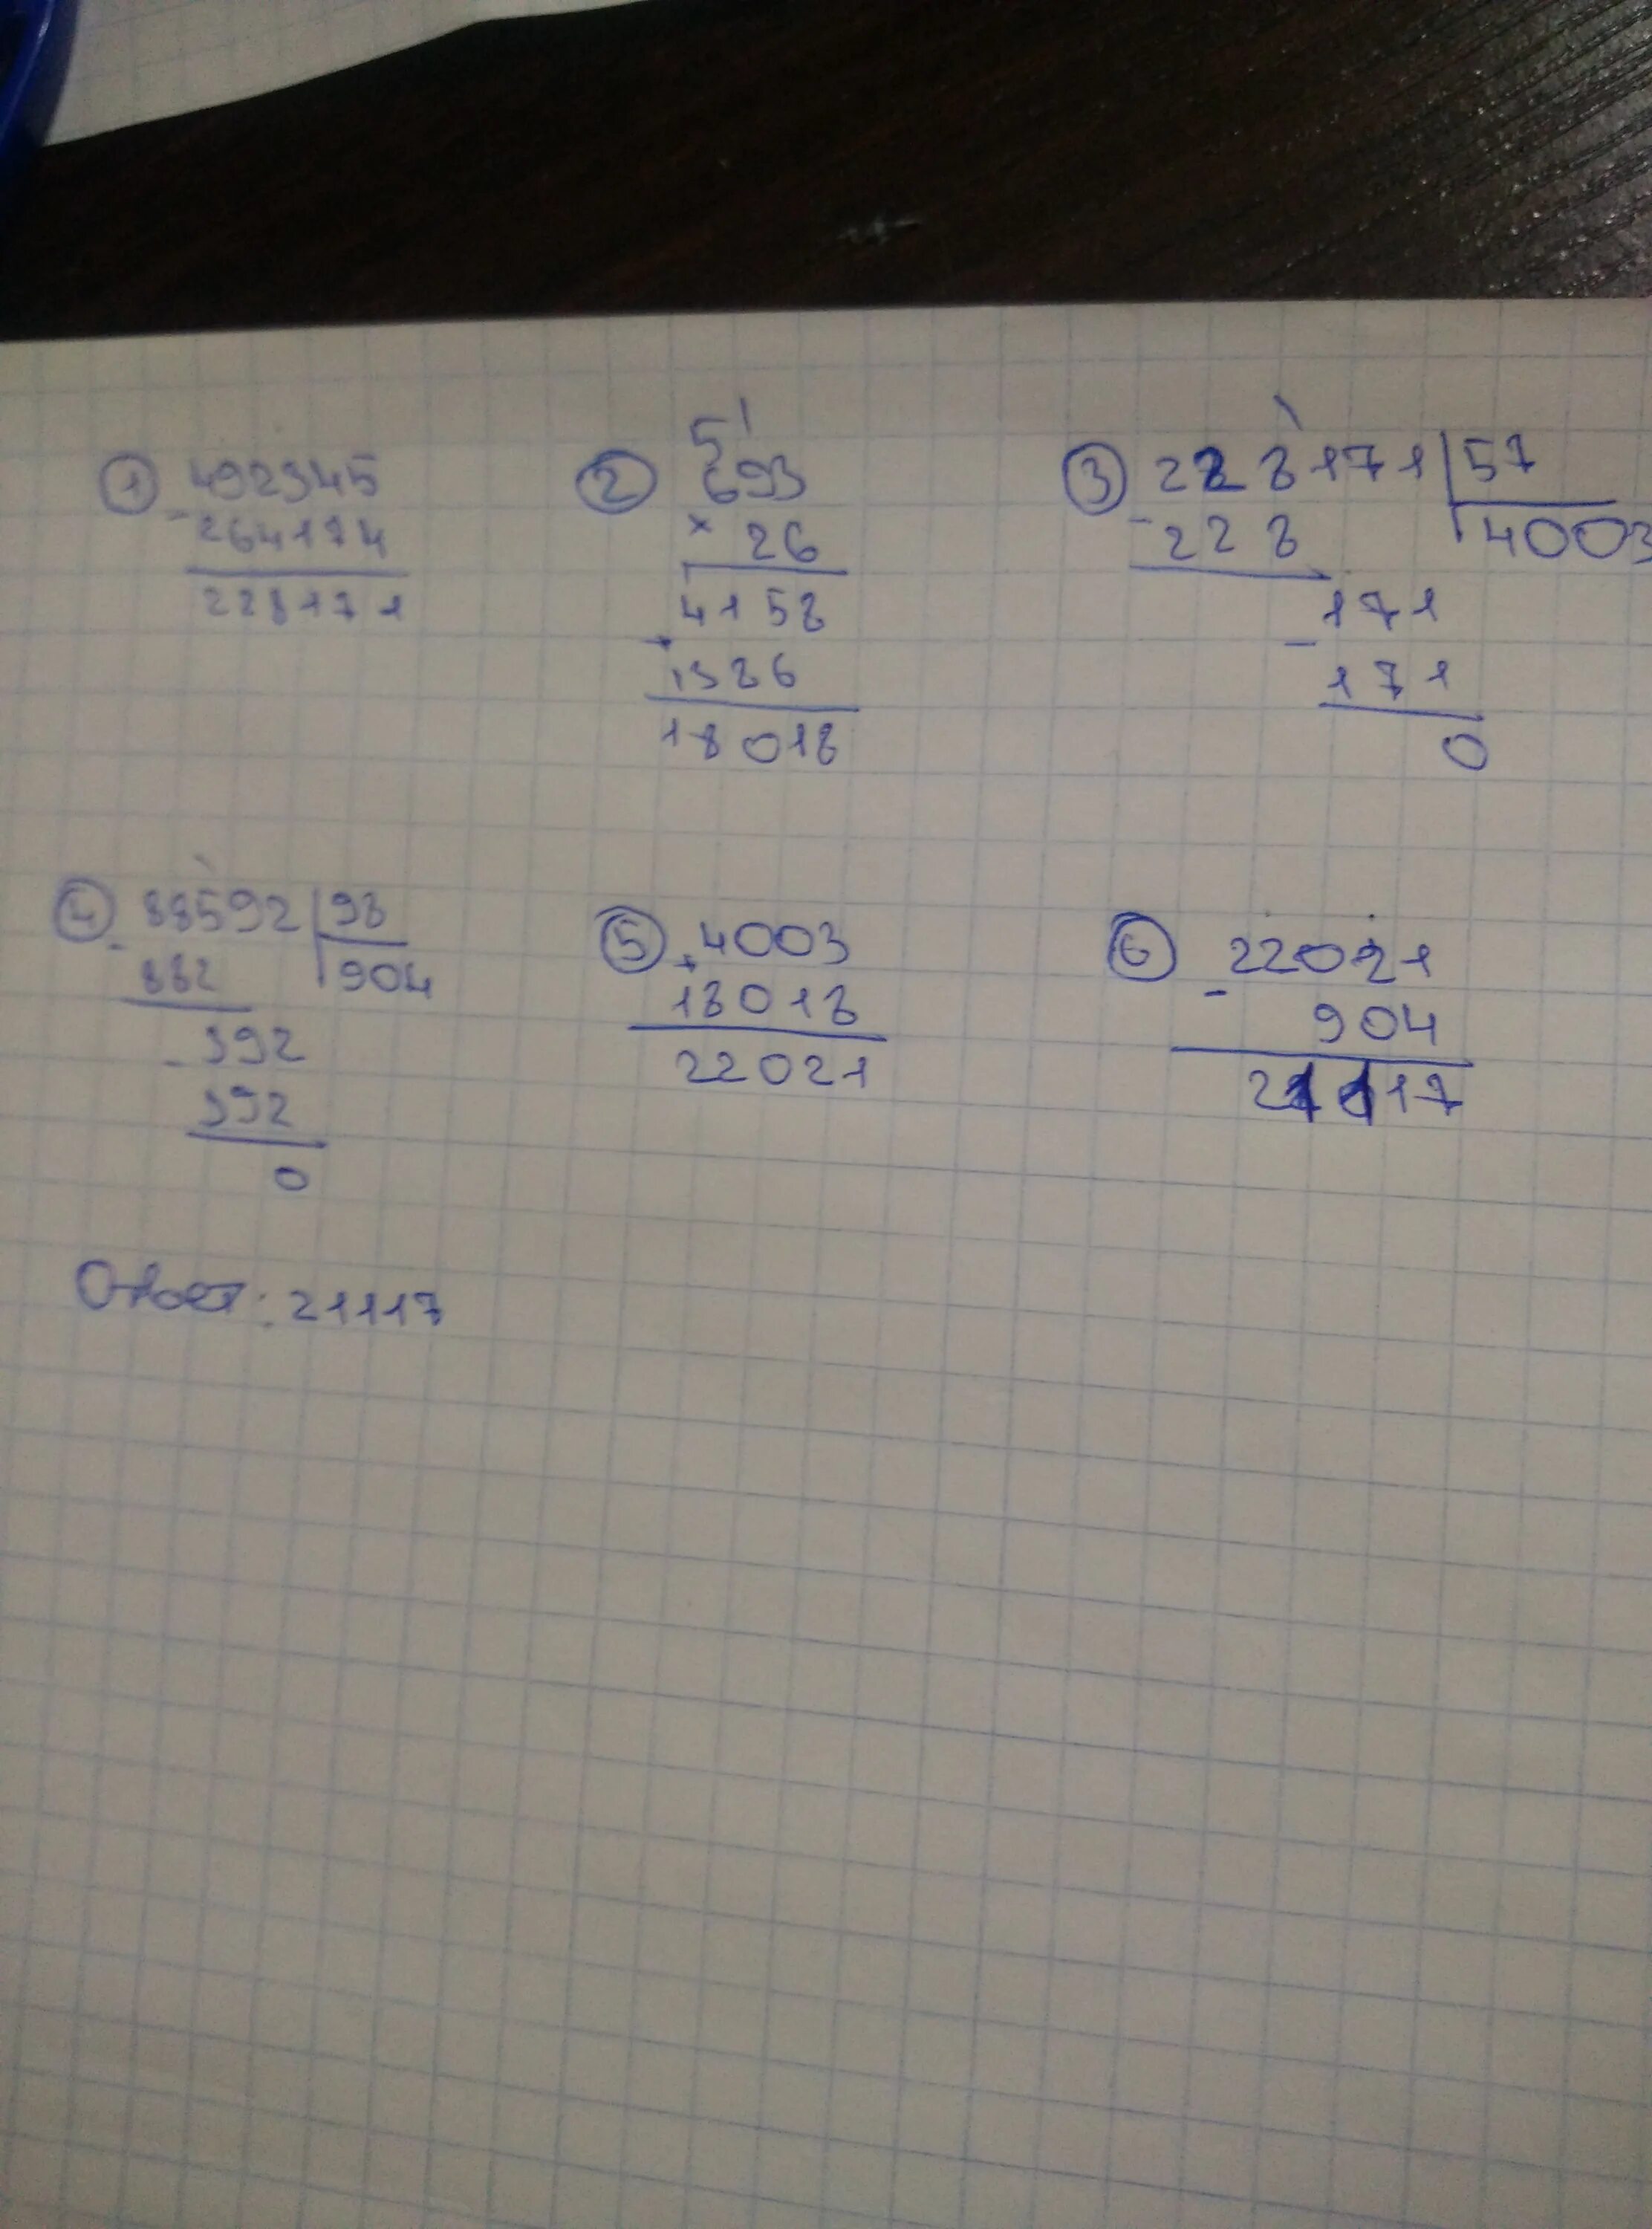 ① 492345
- 264174
228171
② 5 1
693
× 26
4158
+
1386
18018
③ 228171 | 57
- 228 | 4003
171
-
171
0
④ 88592 | 98
- 882 | 904
- 392
392
0
⑤ 4003
+
18018
22021
⑥ 22021
-
904
21117
Ответ: 21117